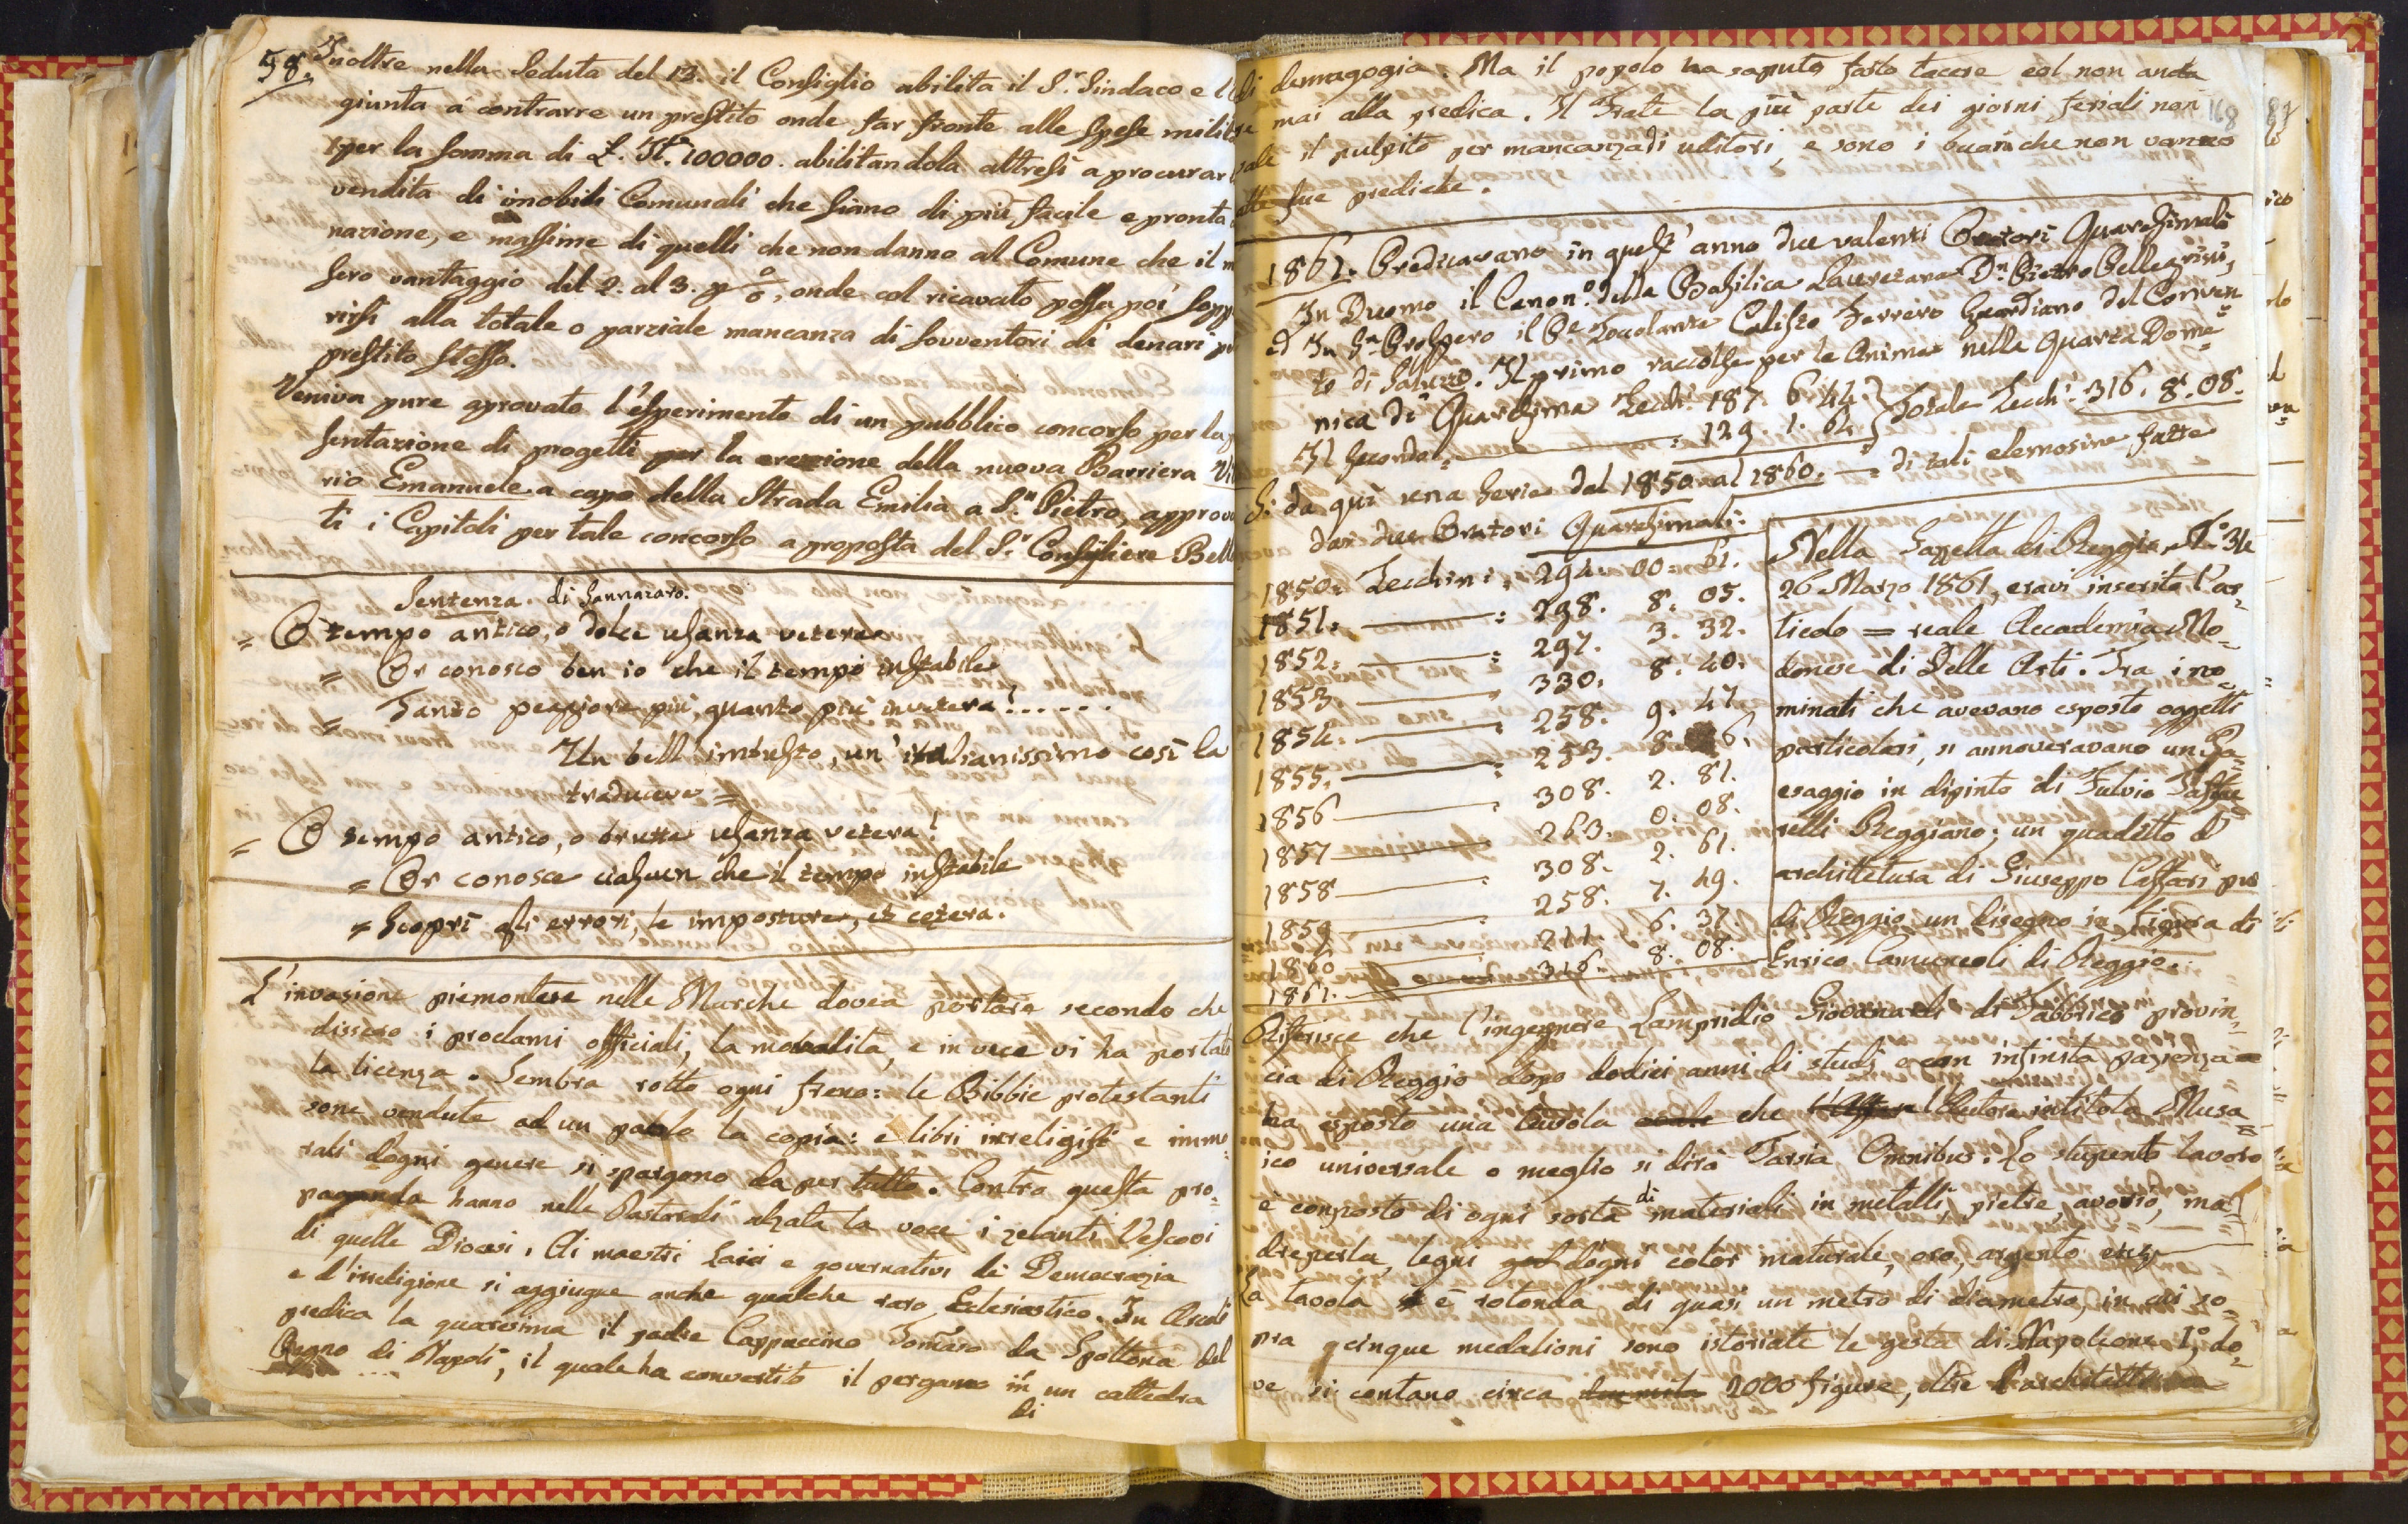 58.
Inoltre nella Seduta del 13. il Consiglio abilita il S.r Sindaco e
giunta a contrarre un prestito onde far fronte alle spese
per la somma di £. It. 100000. abilitandola altresì a procurar
vendita di imobili Comunali che siano di più facile e pronta
nazione, e massime di quelli che non danno al Comune che il
sero vantaggio del 2. al 3. p %, onde col ricavato possa poi
rirsi alla totale o parziale mancanza di sovventori di denari
prestito stesso.
Veniva pure aprovato l'esperimento di un pubblico concorso per la
sentazione di progetti per la erezione della nuova Barriera
rio Emanuele a capo della Strada Emilia a S.n Pietro,
ti i Capitoli per tale concorso a proposta del S.r Consigliere
Sentenza di Sannazaro.
= O tempo antico, o dolce usanza vetera
= Or conosco ben io che il tempo instabile
= Tanto peggiora più, quanto più invetera! .....
Un bell'imbusto, un'italianissimo così la
traduceva =
= O tempo antico, o brutta usanza vetera!
= Or conosce ciascun che il tempo instabile
= Scoprì gli errori, le imposture, et cetera.
L'invasione piemontese nelle Marche dovea portare secondo che
dissero i proclami officiali, la moralità, e in vece vi ha portato
la licenza. Sembra rotto ogni freno: le Bibbie protestanti
sono vendute ad un paolo la copia: e libri irreligiosi e immo=
rali d'ogni genere si spargono da per tutto. Contro questa pro=
paganda hanno nelle Pastorali alzata la voce i zelanti Vescovi
di quelle Diocesi. Ai maestri Laici e governativi di Democrazia
e d'irreligione si aggiugne anche qualche raro Eclesiastico. In Ascoli
predica la quaresima il padre Cappuccino Tomaso da Spoltona del
Regno di Napoli, il quale ha convertito il pergamo in un cattedra
di
di demagogia. Ma il popolo ha saputo farlo tacere col non
mai alla predica. Il Frate la più parte dei giorni feriali non
168
sale il pulpito per mancanza di uditori, e sono i buoni che non vanno
alle sue prediche.
1861. Predicavano in quest'anno due valenti Oratori Quaresimali
In Duomo il Canon.o della Basilica Lauretana D.n Pietro Pellegrini,
ed In S.n Prospero il P.e Zoccolante Calisto Ferrero Guardiano del Conven
to di Saluzzo. Il primo raccolse per le Anime nella Quarta Dome=
nica di Quaresima Zecchi 187. 6. 44. } Totale Zecch.i 316. 8. 08.
Il Secondo : 129. 1. 64
Si da quì una Serie dal 1850. al 1860. di tali elemosine fatte
dai due Oratori Quaresimali:
1850: Zecchini : 294. 00. 61.
1851: : 298. 8. 05.
1852: : 297. 3. 32.
1853. : 330. 8. 40.
1854. : 258. 9. 47
1855. : 253. 8. 6.
1856 : 308. 2. 81.
1857 263. 0. 08.
1858 : 308. 2. 61.
1859 : 258. 7. 49.
1860 211. 6. 37
1861. 316. 8. 08.
Nella Gazzetta di Reggio N.o 314
26 Marzo 1861, eravi inserito l'ar=
ticolo = reale Accademia Mo=
denese di Belle Arti. Fra i no=
minati che avevano esposto oggetti
particolari, si annoveravano un Pa=
esaggio in dipinto di Fulvio
relli Reggiano; un quadretto d'
architettura di Giuseppe Caffari pur
di Reggio, un disegno in Figura di
Enrico Camuncoli di Reggio.
Riferisce che l'ingegnere Lampridio Giovanardi di Fabbrico provin=
cia di Reggio dopo dodici anni di studj e con infinita pazienza
ha esposto una tavola che l'Autore intitola Musa=
ico universale o meglio si dirà Tarsia Omnibus. Lo stupento lavoro
è composto di ogni sorta di materiali in metalli, pietre, avorio, ma=
dreperla, legni d'ogni color naturale, oro, argento
La tavola è rotonda di quasi un metro di diametro, in cui so=
pra a cinque medalioni sono istoriate le gesta di Napoleone I.o, do=
ve si contano circa 2000 figure, oltre l'architettura